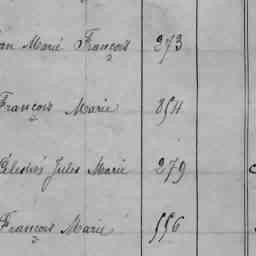 an Marie François 273
François Marie 854
Célestin Jules Marie 279
François Marie 556